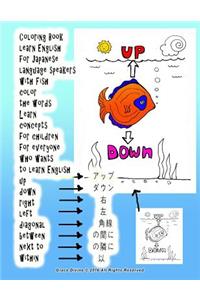 Coloring Book
Learn English
for Japanese
Language Speakers
With Fish
color
the Words
Learn
concepts
for children
for everyone
who wants
to learn English
up
down
right
left
diagonal
between
next to
within
アップ
ダウン
右
左
角線に
の間に
の隣に
以
UP
DOWN
Grace Divine © 2016 All Rights Reserved